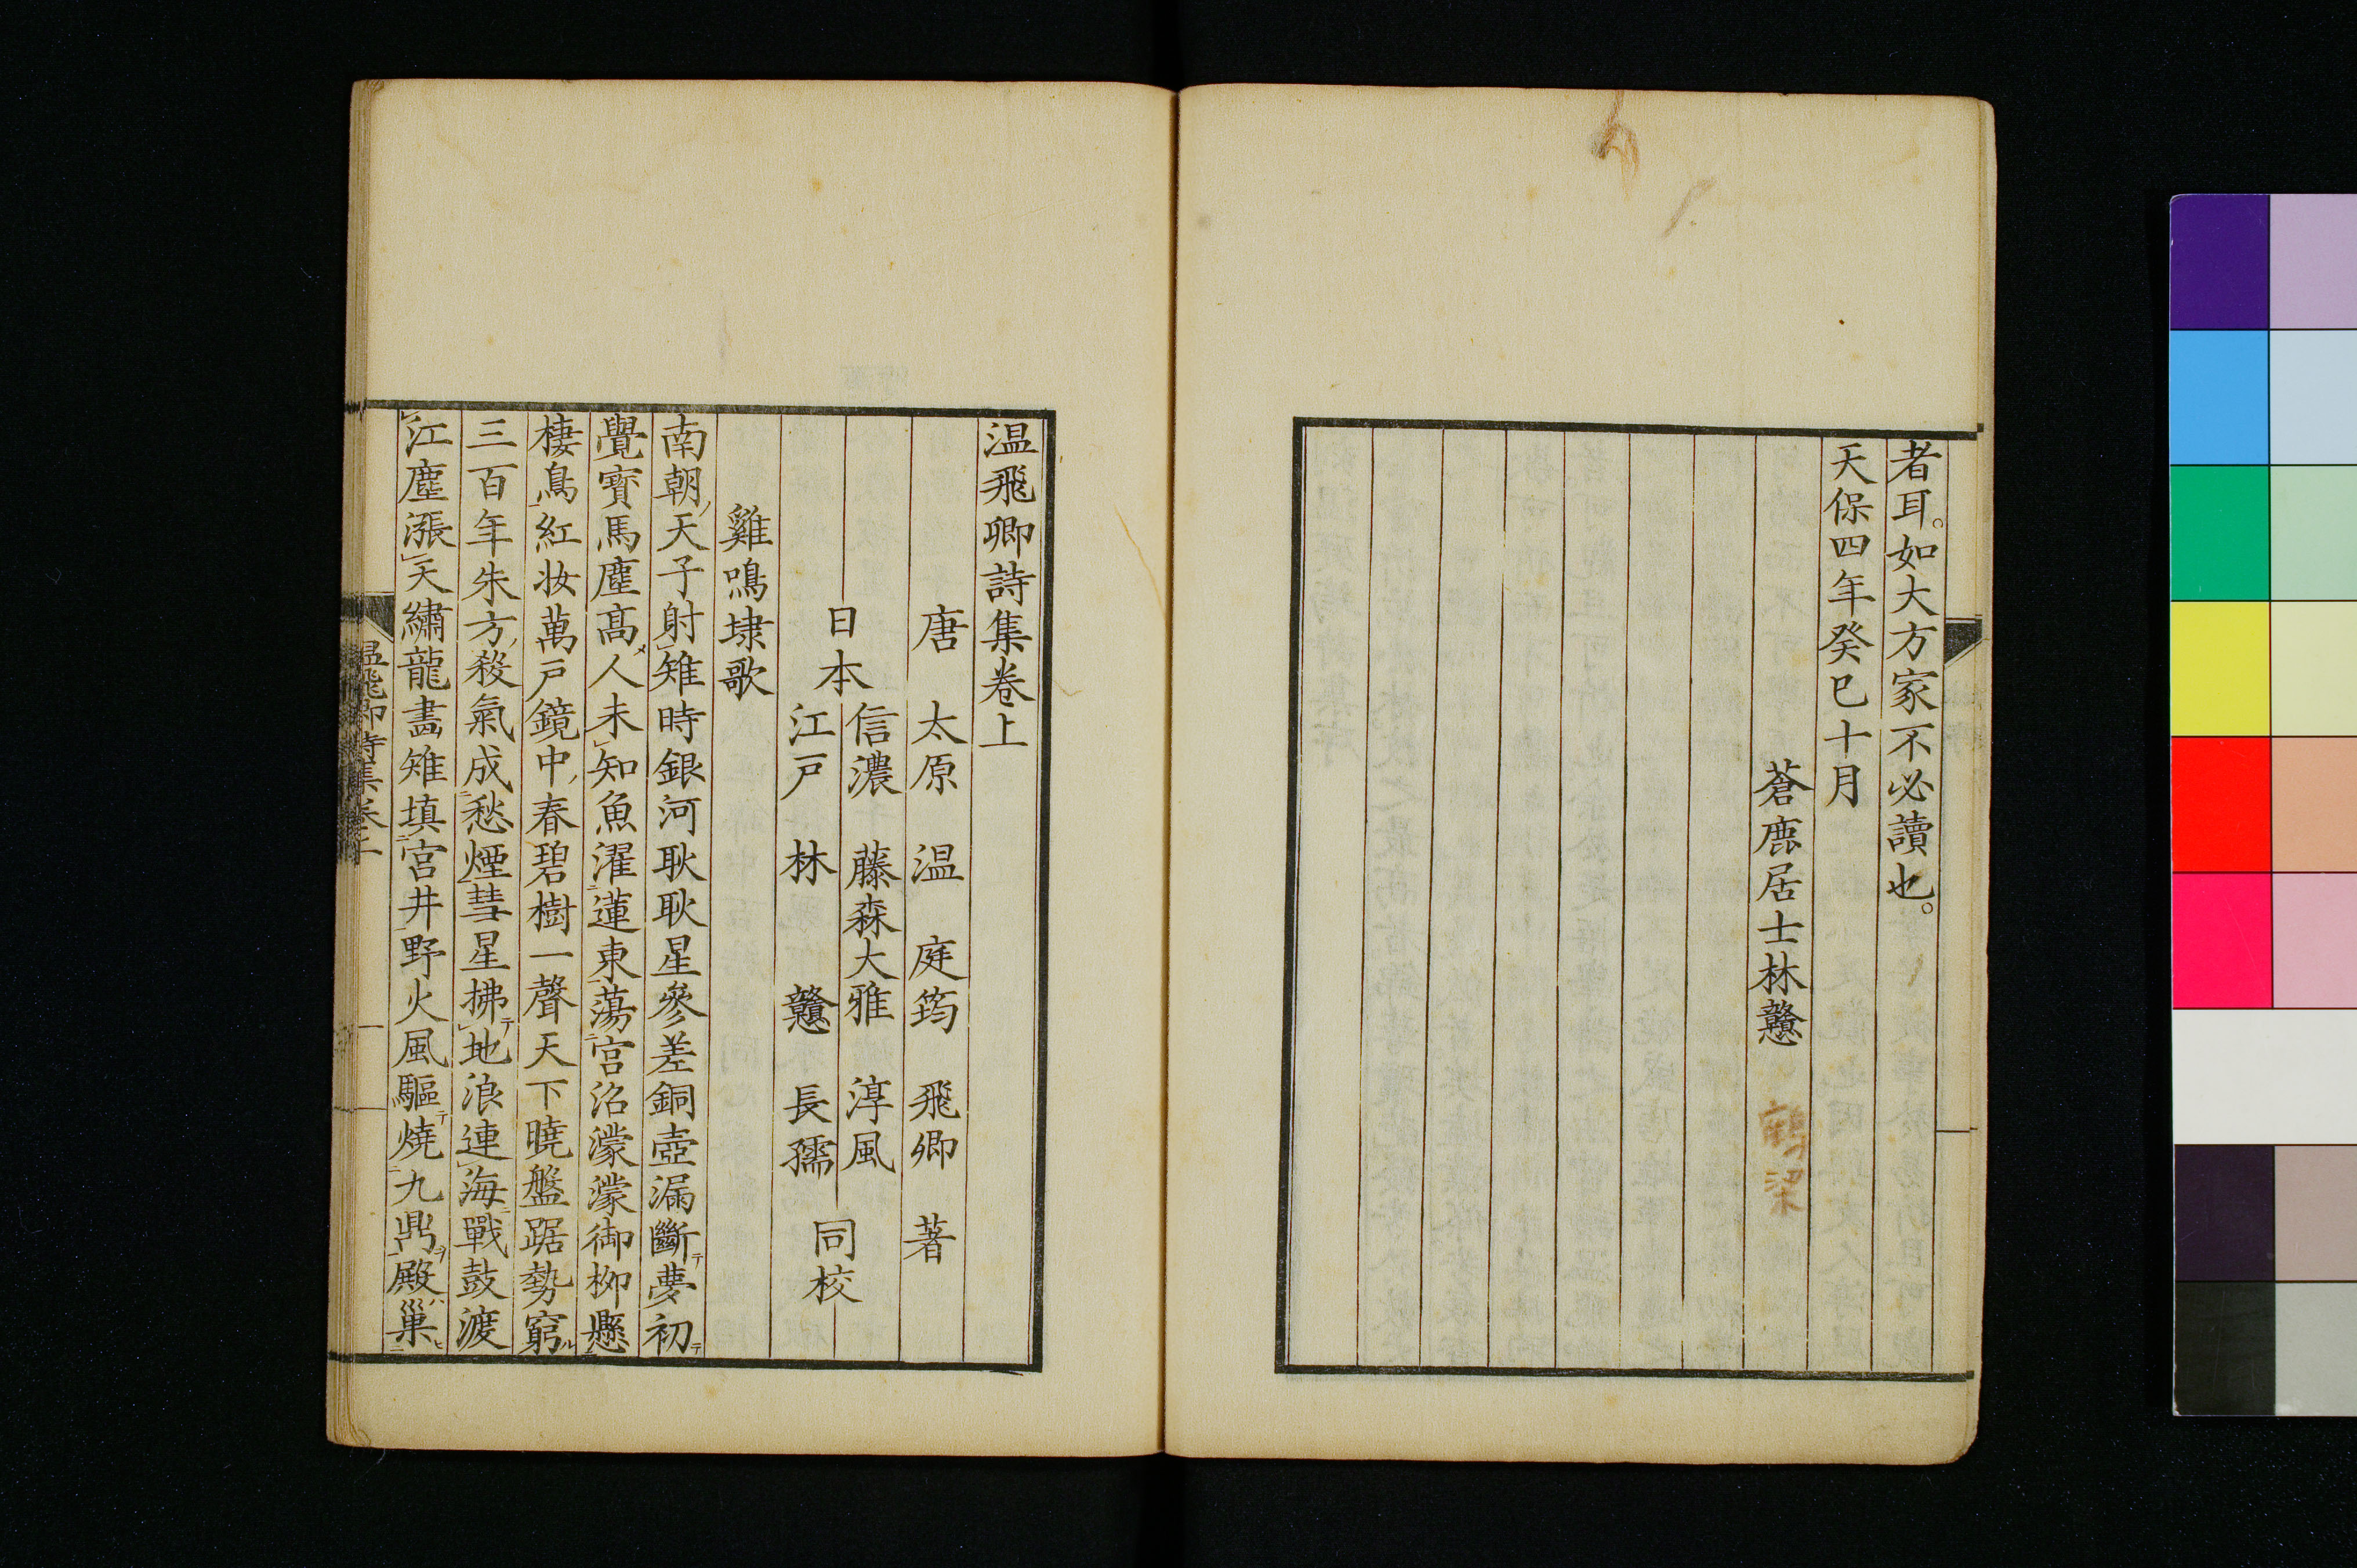 者耳。如大方家不必讀也。
天保四年癸巳十月
蒼鹿居士林戇
鶴梁
温飛卿詩集卷上
唐 太原 温 庭筠 飛卿 著
日本 信濃 藤森大雅 淳風
江戸 林 戇 長孺 同校
雞鳴埭歌
南朝天子射雉時銀河耿耿星參差銅壺漏斷夢初
覺寳馬塵髙人未知魚濯蓮東蕩宫沼濛濛御柳懸
棲鳥紅妝萬戸鏡中春碧樹一聲天下曉盤踞勢窮
三百年朱方殺氣成愁煙彗星拂地浪連海戰鼓渡
江塵漲天繡龍畵雉填宫井野火風驅燒九鼎殿巢
温飛卿詩集卷上